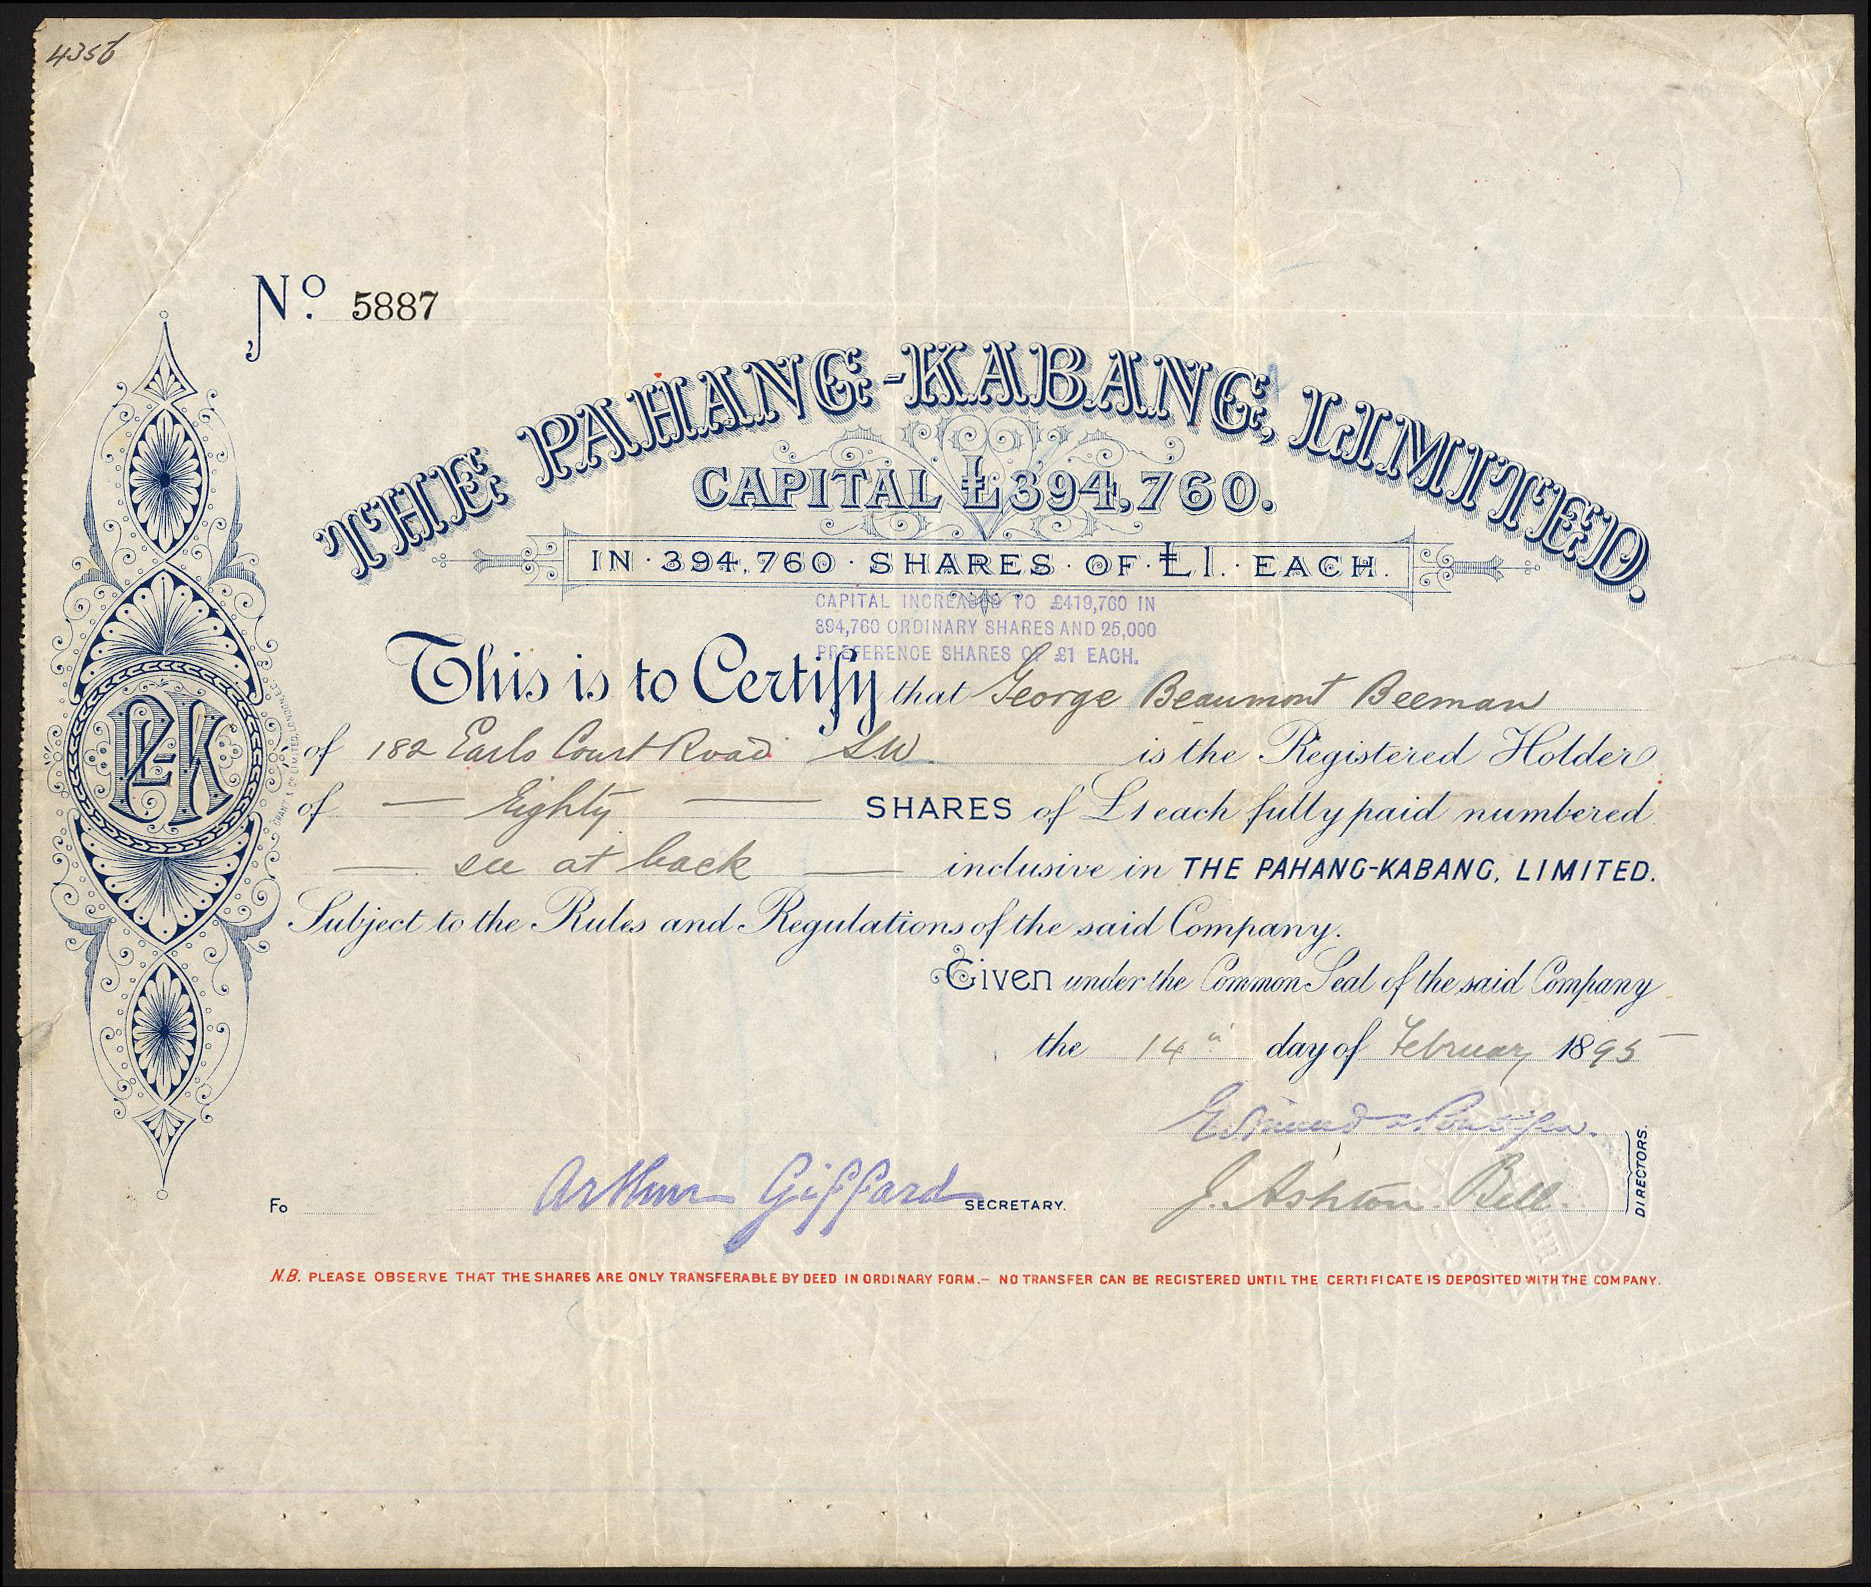 4356
No. 5887
THE PAHANG-KABANG, LIMITED.
CAPITAL £394,760.
IN · 394,760 · SHARES · OF · £1. · EACH.
CAPITAL INCREASED TO £419,760 IN
394,760 ORDINARY SHARES AND 25,000
PREFERENCE SHARES OF £1 EACH.
This is to Certify that George Beaumont Beeman
of 182 Earls Court Road SW is the Registered Holder
of — Eighty — SHARES of £1 each fully paid numbered
— see at back — inclusive in THE PAHANG-KABANG, LIMITED.
Subject to the Rules and Regulations of the said Company.
Given under the Common Seal of the said Company
the 14th day of February 1895
Edmund
Arthur Giffard SECRETARY.
J. Ashton Bell.
DIRECTORS.
Fo
N.B. PLEASE OBSERVE THAT THE SHARES ARE ONLY TRANSFERABLE BY DEED IN ORDINARY FORM.— NO TRANSFER CAN BE REGISTERED UNTIL THE CERTIFICATE IS DEPOSITED WITH THE COMPANY.